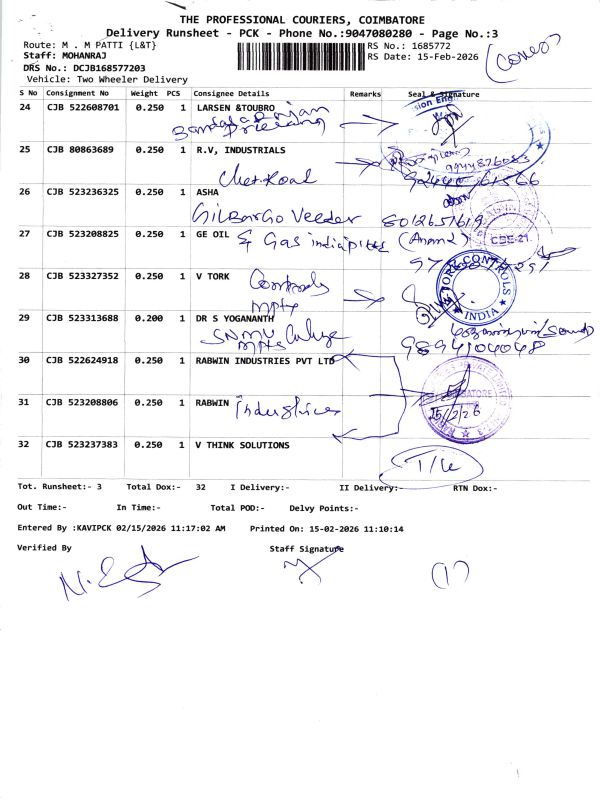 THE PROFESSIONAL COURIERS, COIMBATORE
Delivery Runsheet - PCK - Phone No.:9047080280 - Page No.:3
Route: M . M PATTI {L&T}
RS No.: 1685772
Staff: MOHANRAJ
RS Date: 15-Feb-2026
DRS No.: DCJB168577203
Vehicle: Two Wheeler Delivery
S No Consignment No Weight PCS Consignee Details Remarks Seal & Signature
24 CJB 522608701 0.250 1 LARSEN &TOUBRO
25 CJB 80863689 0.250 1 R.V, INDUSTRIALS
9944876083
26 CJB 523236325 0.250 1 ASHA
Gilbargo Veeder 8012651619
27 CJB 523208825 0.250 1 GE OIL
& Gas india pvt (Anand)
CBE-21.
28 CJB 523327352 0.250 1 V TORK
Controls
TORK CONTROLS
INDIA
29 CJB 523313688 0.200 1 DR S YOGANANTH
SNMV College
9894104048
30 CJB 522624918 0.250 1 RABWIN INDUSTRIES PVT LTD
31 CJB 523208806 0.250 1 RABWIN
Industries
15/2/26
32 CJB 523237383 0.250 1 V THINK SOLUTIONS
Tot. Runsheet:- 3 Total Dox:- 32 I Delivery:- II Delivery:- RTN Dox:-
Out Time:- In Time:- Total POD:- Delvy Points:-
Entered By :KAVIPCK 02/15/2026 11:17:02 AM Printed On: 15-02-2026 11:10:14
Verified By Staff Signature